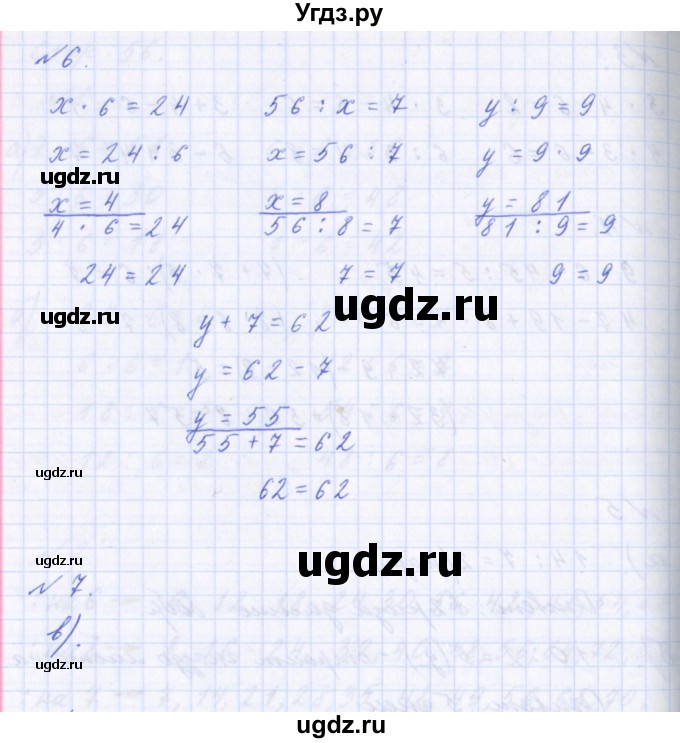 Угдз.ру
№ 6.
x · 6 = 24 56 : x = 7 y : 9 = 9
x = 24 : 6 x = 56 : 7 y = 9 · 9
ugdz.ru
x = 4 x = 8 y = 81
4 · 6 = 24 56 : 8 = 7 81 : 9 = 9
24 = 24 7 = 7 9 = 9
ugdz.ru
ugdz.ru
y + 7 = 62
y = 62 - 7
y = 55
55 + 7 = 62
ugdz.ru
62 = 62
ugdz.ru
ugdz.ru
№ 7.
в).
ugdz.ru
ugdz.ru